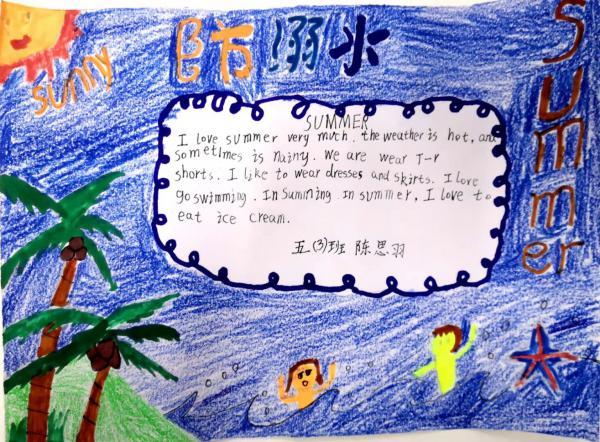 sunny
防溺水
Summer
SUMMER
I love summer very much. the weather is hot, and
sometimes is nainy. We are wear T-r
shorts. I like to wear dresses and skirts. I love
go swimming. In summing. In summer, I love to
eat ice cream.
五(3)班 陈思羽